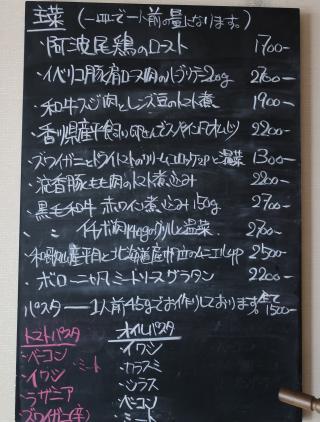 主菜 (一皿で一人前の量になります。)
・阿波尾鶏のロースト 1700-
・イベリコ豚肩ロース肉の 200g 2700-
・和牛スジ肉とレンズ豆のトマト煮 1900-
・香川県産平飼い卵 スペイン オムレツ 2200-
・ズワイガニとドライトマトのクリームコロッケ2Pと温菜 1300-
・豚もも肉のトマト煮込み 2200-
・黒毛和牛 赤ワイン煮込み 150g 2700-
・ 〃 イチボ肉 140gのグリルと温菜 2700-
・和歌山産平目と北海道産帆立のムニエル 2500-
・ボローニャ風ミートソースグラタン 2200-
パスタ ― 1人前45gでお作りしております。全て1500-
トマトパスタ
・ベーコン
・ミート
・イワシ
・ラザニア
・ズワイガニ(辛)
オイルパスタ
・イワシ
・カラスミ
・シラス
・ベーコン
・ミート